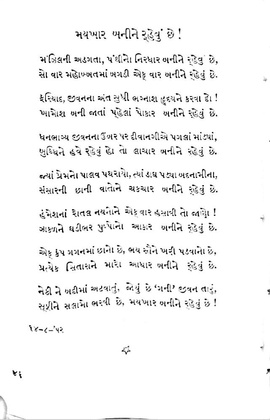 મયખાર બનીને રહેવું છે !
મંઝિલની અડગતા, પંથીનો નિરધાર બનીને રહેવું છે,
સો વાર મહોબ્બતમાં બગડી એક વાર બનીને રહેવું છે.
ફરિયાદ, જીવનના અંત સુધી ભગ્નાશ હૃદયને કરવા દો !
ખામોશ બની જાતાં પહેલાં પોકાર બનીને રહેવું છે.
ધનભાગ્ય જીવનના ઉંબર પર દીવાનગીએ પગલાં માંડ્યાં,
બુદ્ધિને હવે રહેવું હો તો લાચાર બનીને રહેવું છે.
જ્યાં પ્રેમનો પાલવ પથરાયો, ત્યાં ઢાઢ પડ્યા બદનામીના,
સંસારની છાની વાતોને ચકચાર બનીને રહેવું છે.
હંમેશનાં સજલ નયનોને એક વાર હસાવી તો જાણો !
ઝાકળને ઘડીભર પુષ્પોનો આકાર બનીને રહેવું છે.
એક કંપ ગગનમાં છાનો છે, ભય સૌને ખરી પડવાનો છે,
પ્રત્યેક સિતારાને મારો આધાર બનીને રહેવું છે.
નેકી ને બદીમાં અટવાતું, જોયું છે ‘ગની’ જીવન તારું,
સૃષ્ટિને સલામો ભરવી છે, મયખાર બનીને રહેવું છે !
૧૪-૮-’૫૨
૪૬